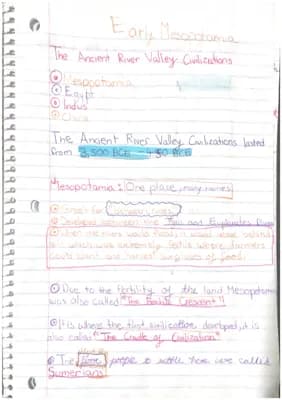 Early Mesopotamia
The Ancient River Valley Civilizations
Mesopotamia
Egypt
Indus
China
The Ancient River Valley Civilizations lasted
from 3,500 BCE - 450 BCE
Mesopotamia: One place, many names
Greek for
Developed between the Tigris and Euphrates River
When the rivers would flood, it would leave behind
silt which was extremely fertile where farmers
could plant and harvest surpluses of food.
Due to the fertility of the land Mesopotamia
was also called "The Fertile Crescent"!
It is where the first civilization developed, it is
also called "The Cradle of Civilization"
The first people to settle there were called
Sumerians.